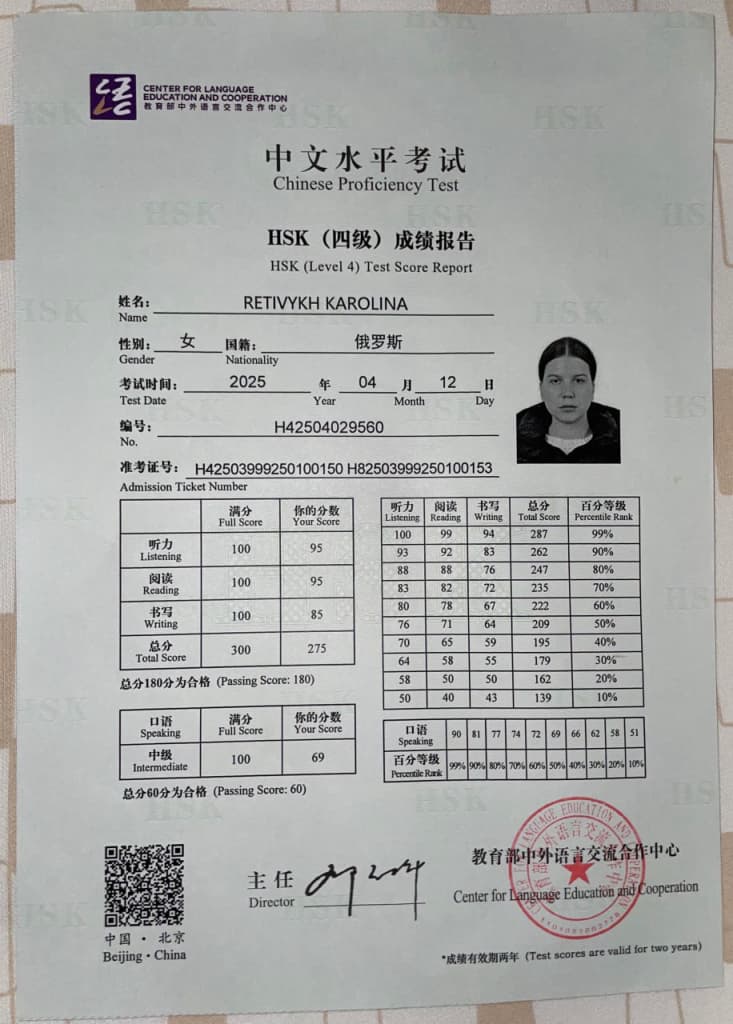 CENTER FOR LANGUAGE
EDUCATION AND COOPERATION
教育部中外语言交流合作中心
中文水平考试
Chinese Proficiency Test
HSK（四级）成绩报告
HSK (Level 4) Test Score Report
姓名： RETIVYKH KAROLINA
Name
性别： 女 国籍： 俄罗斯
Gender Nationality
考试时间： 2025 年 04 月 12 日
Test Date Year Month Day
编号： H42504029560
No.
准考证号： H42503999250100150 H82503999250100153
Admission Ticket Number
满分 你的分数
Full Score Your Score
听力 100 95
Listening
阅读 100 95
Reading
书写 100 85
Writing
总分 300 275
Total Score
总分180分为合格 (Passing Score: 180)
听力 阅读 书写 总分 百分等级
Listening Reading Writing Total Score Percentile Rank
100 99 94 287 99%
93 92 83 262 90%
88 88 76 247 80%
83 82 72 235 70%
80 78 67 222 60%
76 71 64 209 50%
70 65 59 195 40%
64 58 55 179 30%
58 50 50 162 20%
50 40 43 139 10%
口语 满分 你的分数
Speaking Full Score Your Score
中级 100 69
Intermediate
总分60分为合格 (Passing Score: 60)
口语 90 81 77 74 72 69 66 62 58 51
Speaking
百分等级 99% 90% 80% 70% 60% 50% 40% 30% 20% 10%
Percentile Rank
中国 · 北京
Beijing · China
主任
Director
教育部中外语言交流合作中心
Center for Language Education and Cooperation
*成绩有效期两年 (Test scores are valid for two years)